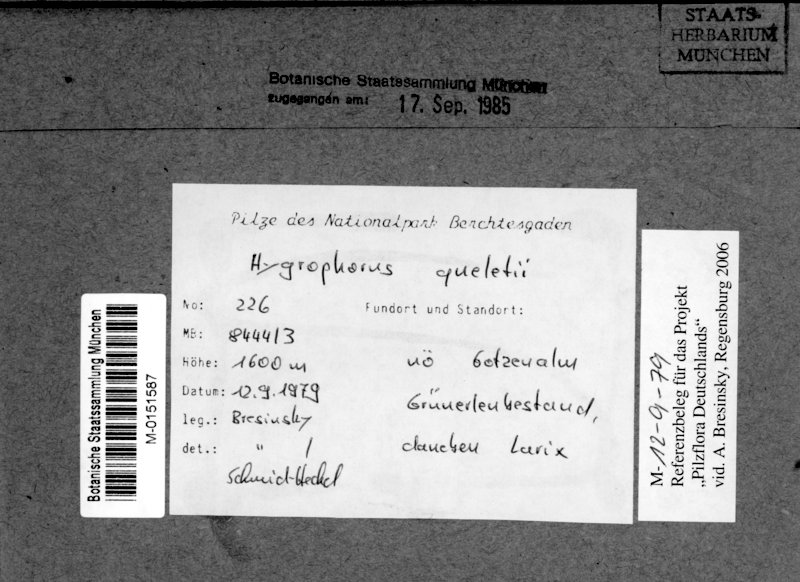 STAATS-
HERBARIUM
MÜNCHEN
Botanische Staatssammlung München
zugegangen am:
17. Sep. 1985
Pilze des Nationalpark Berchtesgaden
Hygrophorus queletii
No: 226
Fundort und Standort:
MB: 8444/3
Höhe: 1600 m
nö Gotzenalm
Datum: 12.9.1979
Grünerlenbestand,
leg.: Bresinsky
det.: " /
daneben Larix
Schmid-Heckel
Botanische Staatssammlung München
M-0151587
M-12-9-79
Referenzbeleg für das Projekt
„Pilzflora Deutschlands“
vid. A. Bresinsky, Regensburg 2006